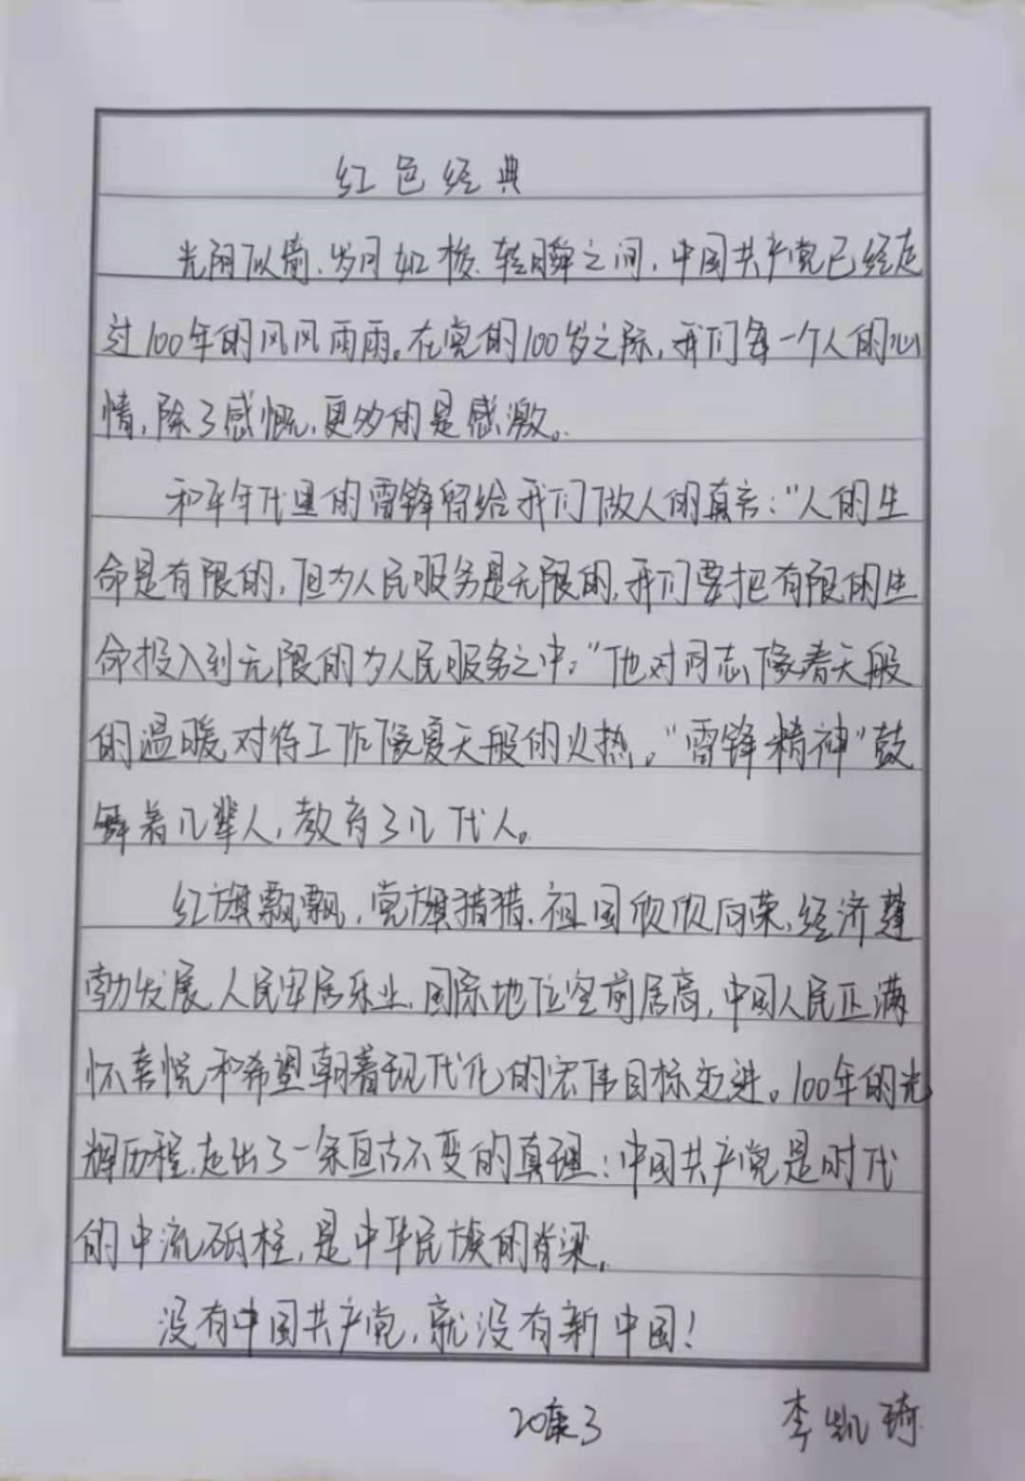 红色经典
光阴似箭、岁月如梭、转瞬之间，中国共产党已经走
过100年的风风雨雨。在党的100岁之际，我们每一个人的心
情，除了感慨，更多的是感激。
和平年代里的雷锋留给我们做人的真言："人的生
命是有限的，但为人民服务是无限的，我们要把有限的生
命投入到无限的为人民服务之中。"他对同志像春天般
的温暖，对待工作像夏天般的火热。"雷锋精神"鼓
舞着几辈人，教育了几代人。
红旗飘飘，党旗猎猎，祖国欣欣向荣，经济蓬
勃发展，人民安居乐业，国际地位空前居高，中国人民正满
怀喜悦和希望朝着现代化的宏伟目标迈进。100年的光
辉历程，走出了一条亘古不变的真理：中国共产党是时代
的中流砥柱，是中华民族的脊梁。
没有中国共产党，就没有新中国！
20康3 李凯琦